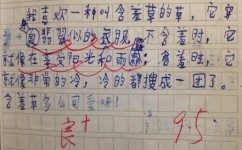 我喜欢一种叫含羞草的草，它穿
翡翠似的衣服，不含羞时，它
就像在享受阳光和雨露，含羞时，它
就像非常的冷，冷的都搜成一团了。
含羞草多么可爱啊！
良+ 9.5